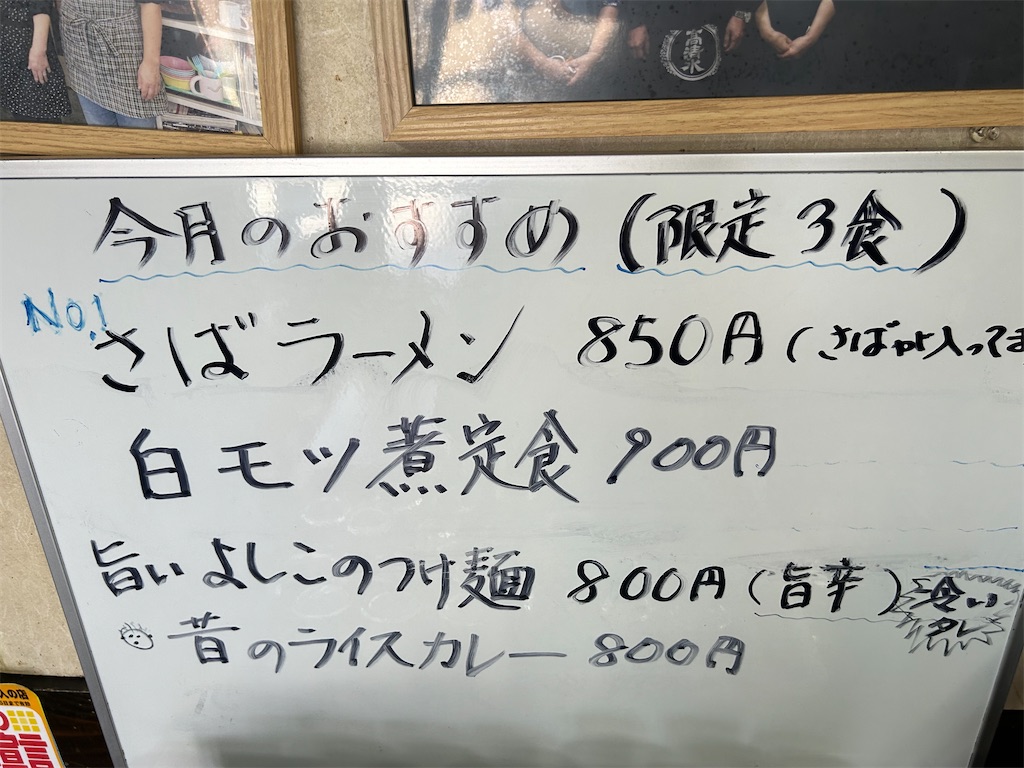 今月のおすすめ(限定3食)
No.1
さばラーメン 850円(さばが入ってま
白モツ煮定食 900円
旨いよしこのつけ麺 800円(旨辛)
冷い
タレ
昔のライスカレー 800円